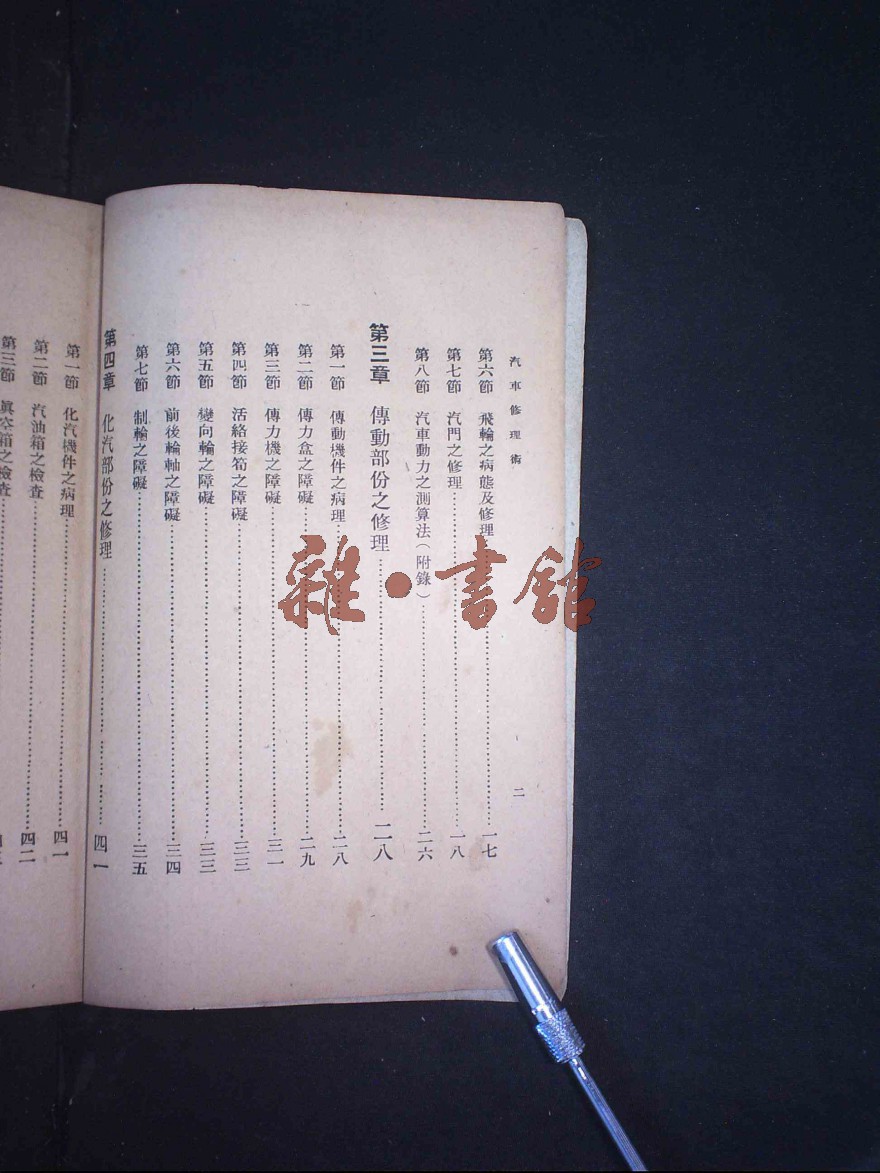 汽車修理術
二
第六節 飛輪之病態及修理……一七
第七節 汽門之修理……一八
第八節 汽車動力之測算法(附錄)……二六
第三章 傳動部份之修理……二八
第一節 傳動機件之病理……二八
第二節 傳力盒之障礙……二九
第三節 傳力機之障礙……三一
第四節 活絡接筍之障礙……三三
第五節 變向輪之障礙……三三
第六節 前後輪軸之障礙……三四
第七節 制輪之障礙……三五
第四章 化汽部份之修理……四一
第一節 化汽機件之病理……四一
第二節 汽油箱之檢查……四二
第三節 眞空箱之檢查……
雜·書館